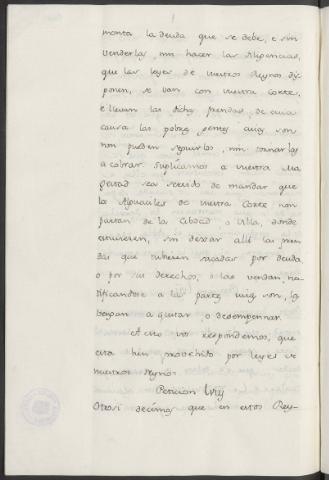 monta la deuda que se debe, e sin
venderlos, nin hacer las diligencias,
que las leyes de vuestros Reynos dis-
ponen, se van con vuestra Corte,
e llevan las dichas prendas, de cuia
causa las pobres gentes cuias son
non pueden seguirlos, nin tornarlas
a cobrar. Suplicamos a vuestra Ma-
gestad sea servido de mandar que
los Alguaciles de vuestra Corte non
partan de la Cibdad o Villa, donde
estuvieren, sin dexar alli las pren-
das que tubieren sacadas por deuda,
o por sus derechos, o las vendan, no-
tificandose a las partes cuias son, las
vayan a quitar o desempennar.
A esto vos respondemos, que
esta bien probehido por leyes de
nuestros Reynos.
Peticion
Otrosi decimos que en estos Rey-